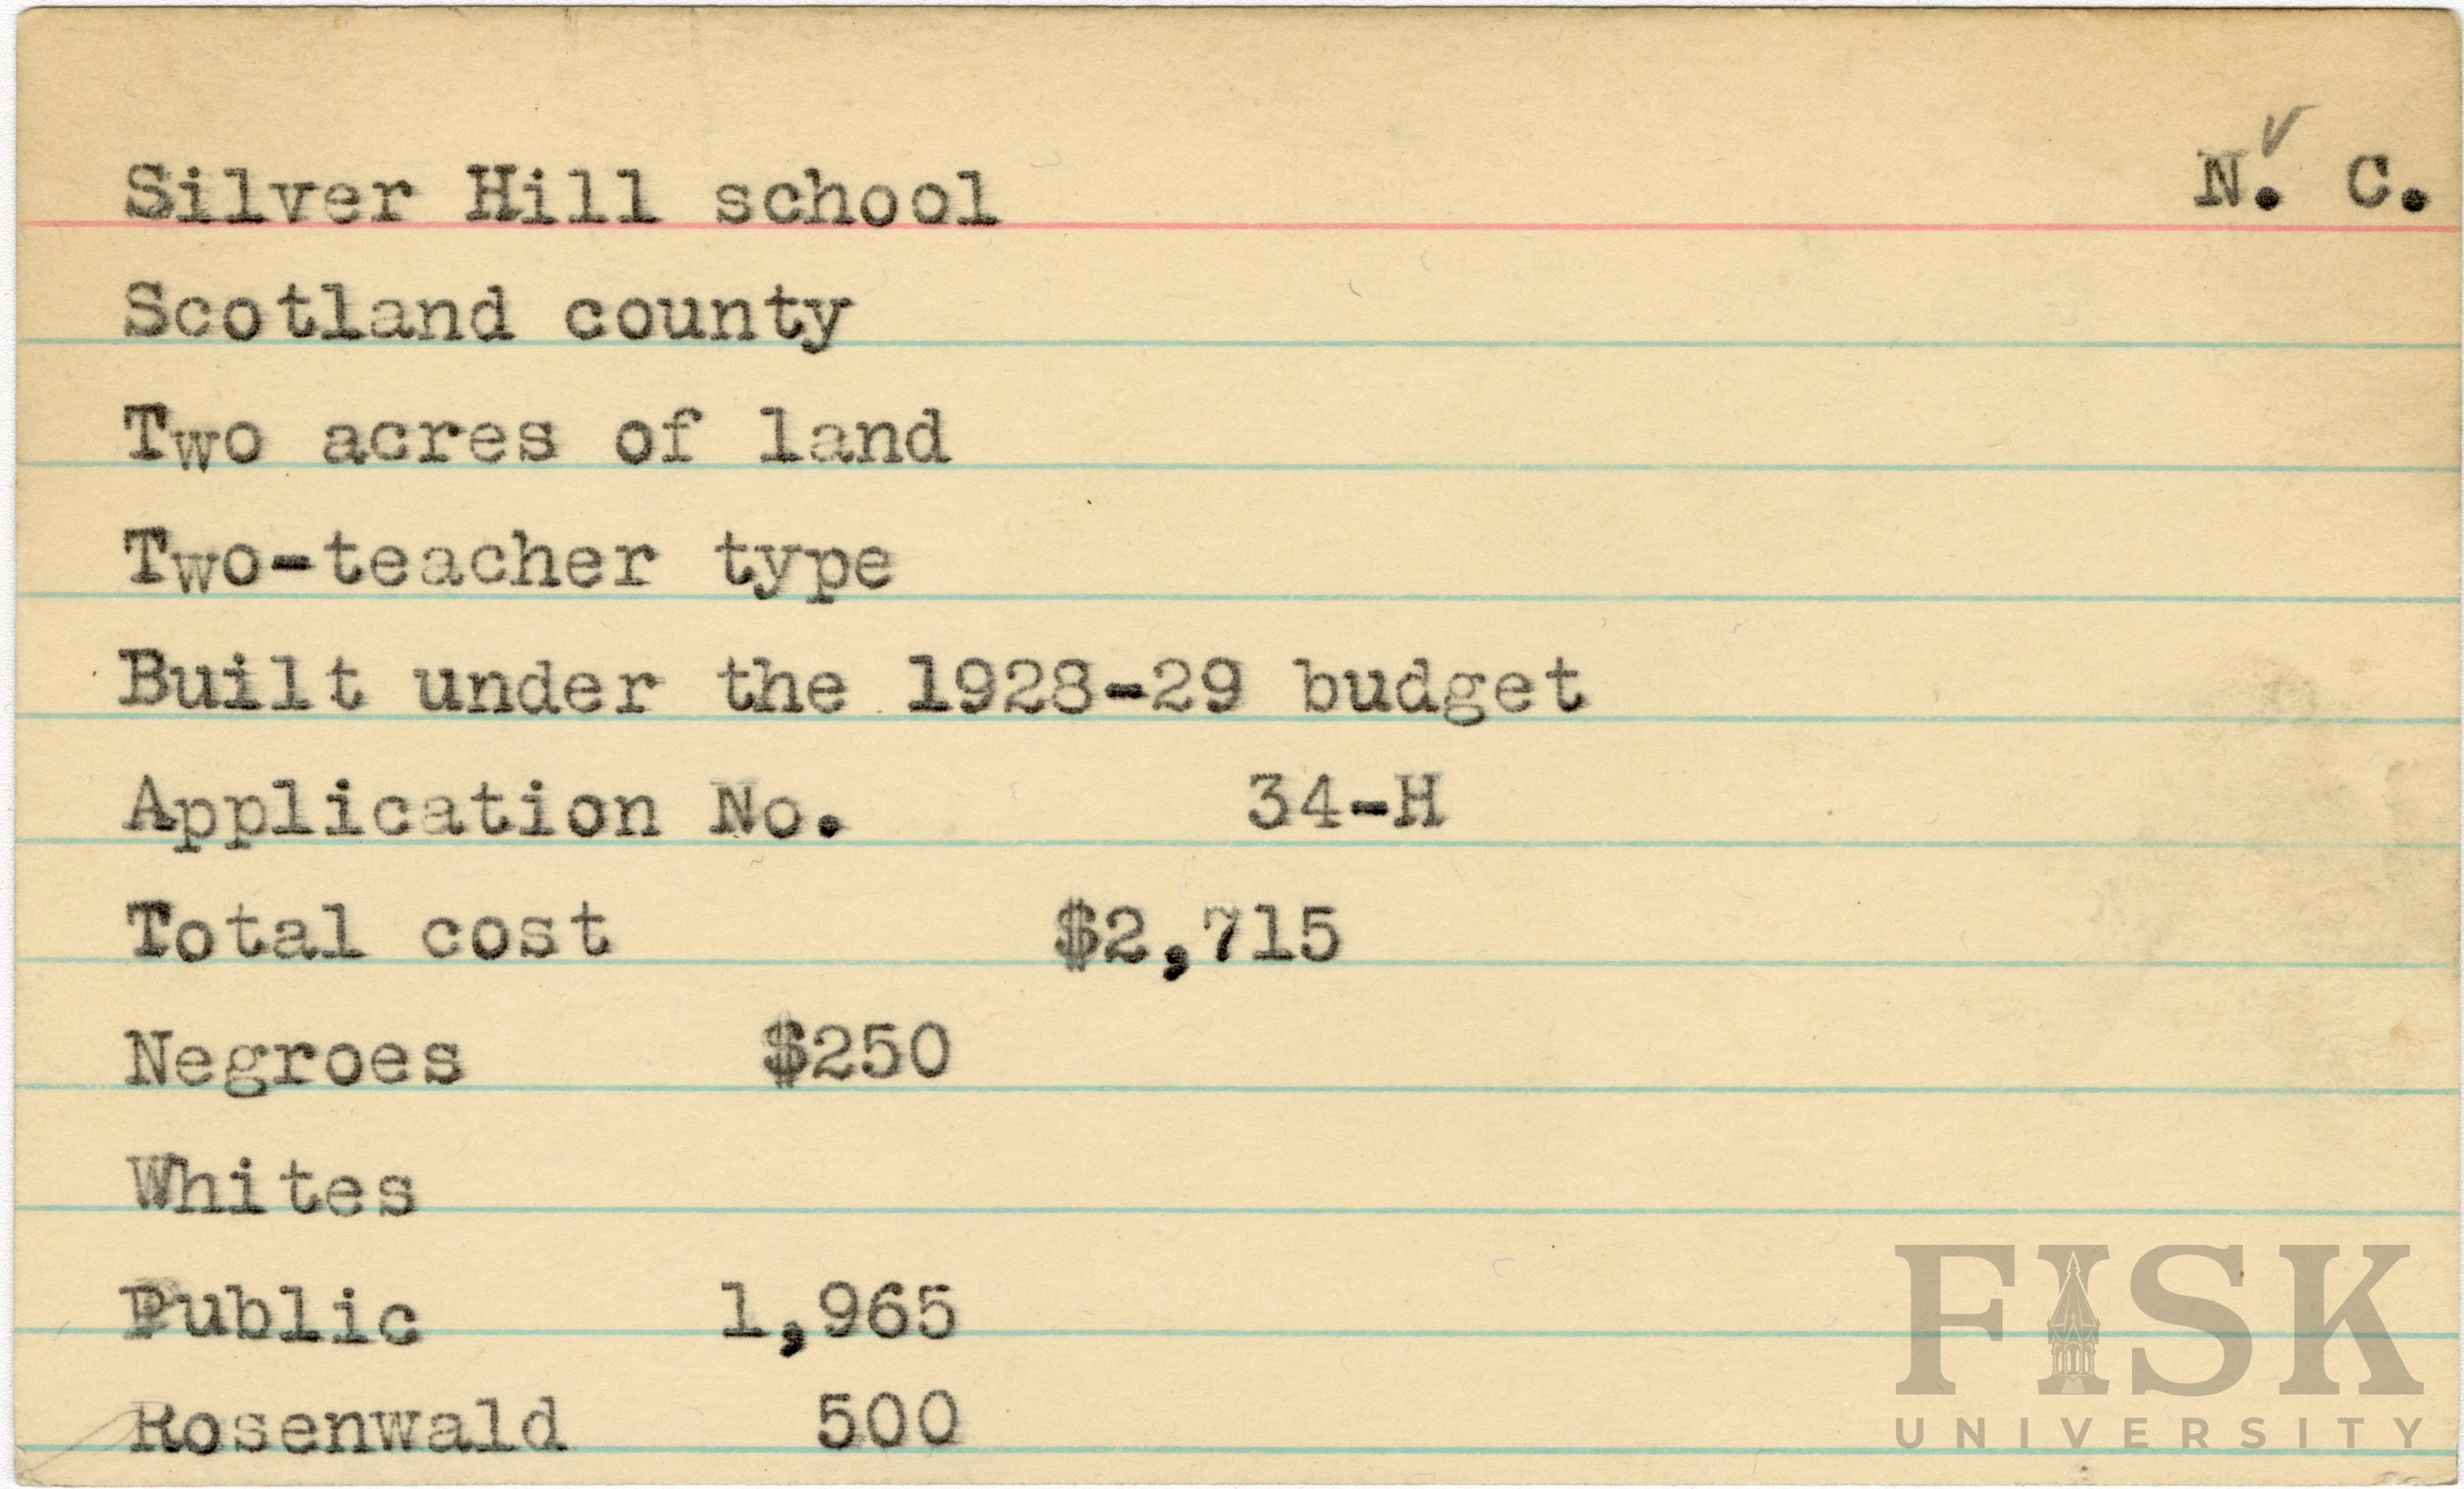 Silver Hill school N. C.
Scotland county
Two acres of land
Two-teacher type
Built under the 1928-29 budget
Application No. 34-H
Total cost $2,715
Negroes $250
Whites
Public 1,965
Rosenwald 500
FISK
UNIVERSITY